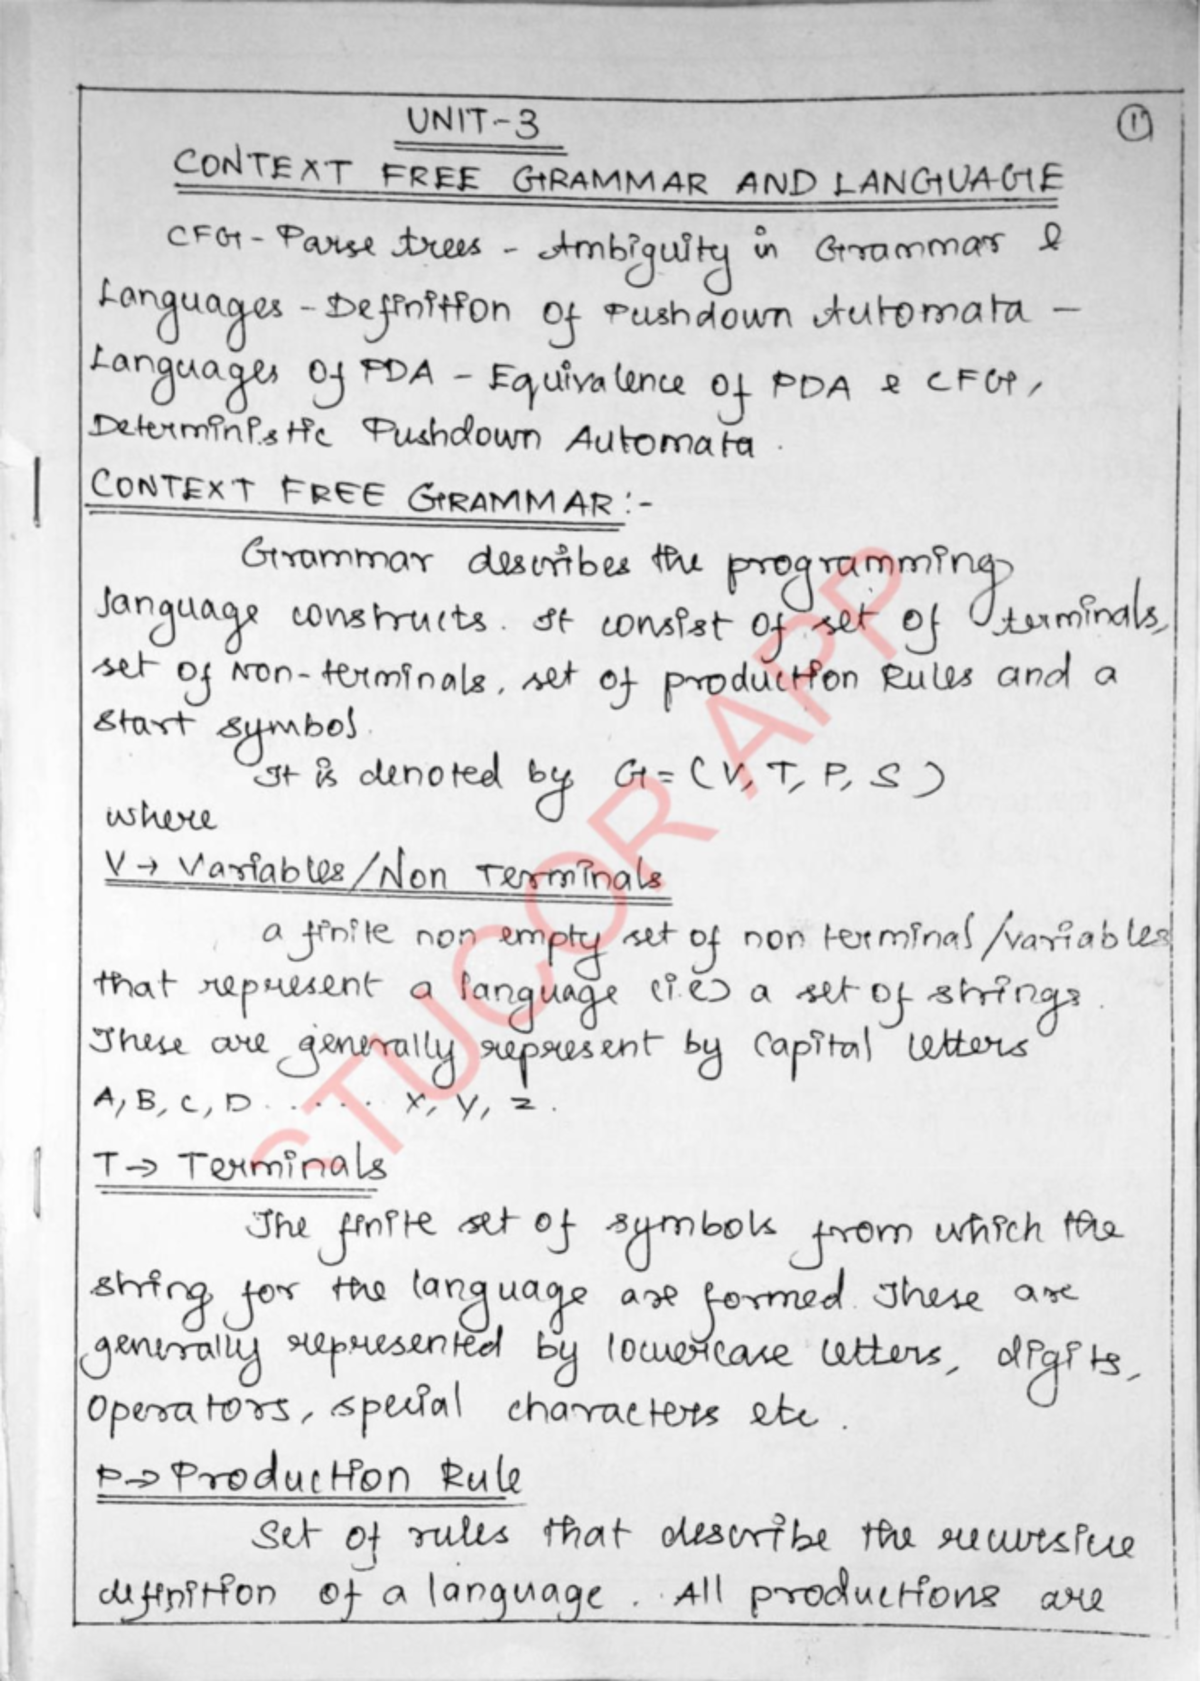 UNIT-3
1
CONTEXT FREE GRAMMAR AND LANGUAGE
CFG - Parse trees - Ambiguity in Grammar &
Languages - Definition of Pushdown Automata -
Languages of PDA - Equivalence of PDA & CFG,
Deterministic Pushdown Automata.
CONTEXT FREE GRAMMAR :-
Grammar describes the programming
language constructs. It consist of set of terminals,
set of Non-terminals, set of production Rules and a
start symbol.
It is denoted by G = (V, T, P, S)
where
V → Variables/Non Terminals
a finite non empty set of non terminal/variables
that represent a language (i.e) a set of strings.
These are generally represent by capital letters
A, B, C, D ...... X, Y, Z.
T → Terminals
The finite set of symbols from which the
string for the language are formed. These are
generally represented by lowercase letters, digits,
operators, special characters etc.
P → Production Rule
Set of rules that describe the recursive
definition of a language. All productions are
STUCOR APP